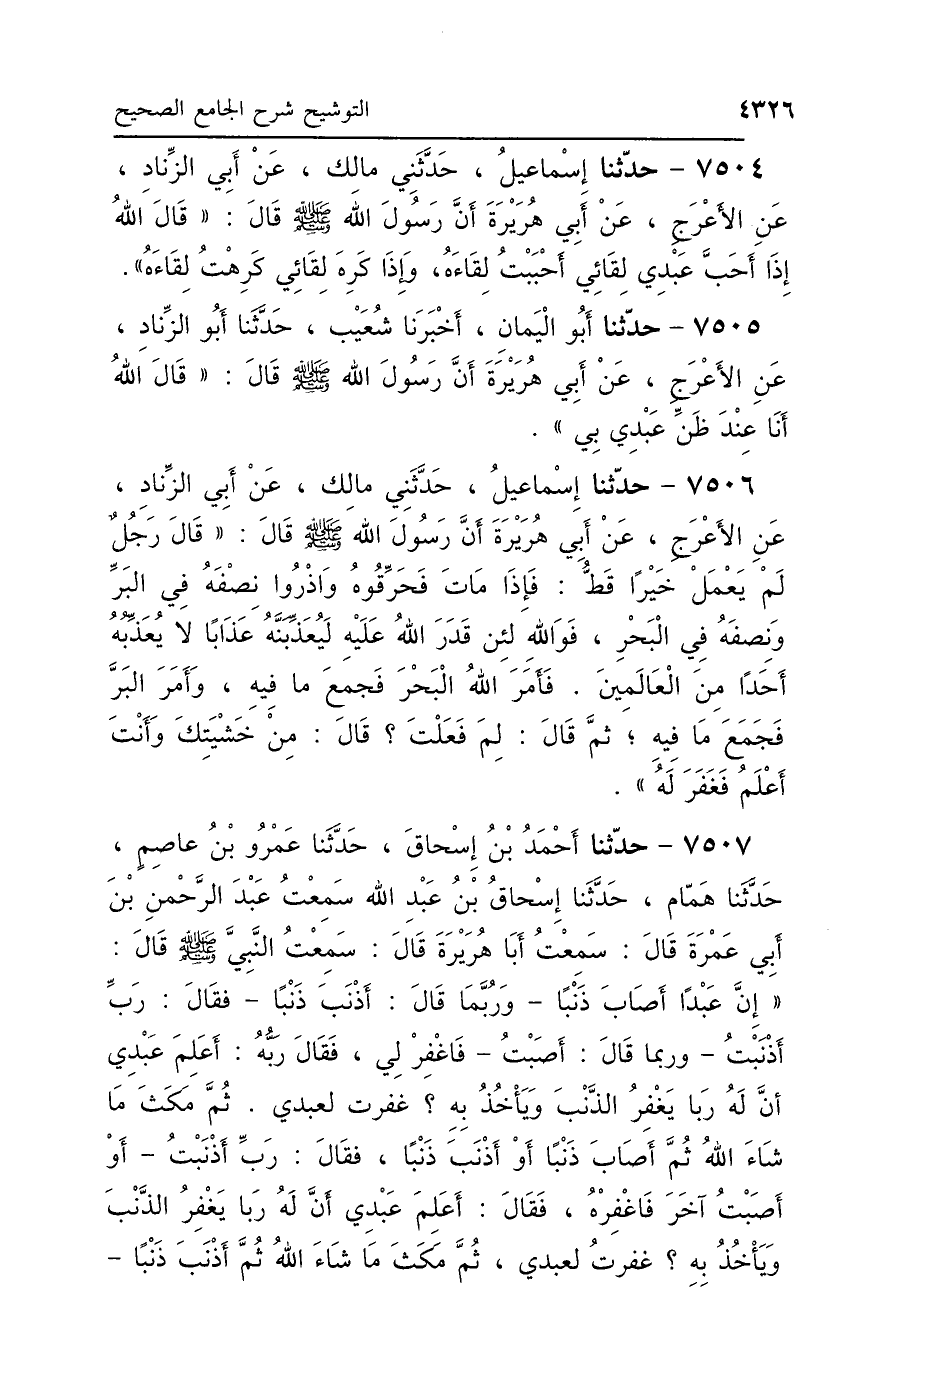 ٤٣٢٦ التوشيح شرح الجامع الصحيح
٧٥٠٤ - حدّثنا إِسْماعيلُ ، حَدَّثَنِي مالك ، عَنْ أَبي الزِّناد ،
عَنِ الأَعْرَجِ ، عَنْ أَبي هُرَيْرَةَ أَنَّ رَسُولَ الله ﷺ قَالَ : « قَالَ اللهُ
إِذَا أَحَبَّ عَبْدِي لِقَائِي أَحْبَبْتُ لِقَاءَهُ، وَإِذَا كَرِهَ لِقَائِي كَرِهْتُ لِقَاءَهُ».
٧٥٠٥ - حدّثنا أَبُو الْيَمان ، أَخْبَرَنا شُعَيْب ، حَدَّثَنا أَبُو الزِّنادِ ،
عَنِ الأَعْرَجِ ، عَنْ أَبِي هُرَيْرَةَ أَنَّ رَسُولَ الله ﷺ قَالَ : « قَالَ اللهُ
أَنَا عِنْدَ ظَنِّ عَبْدِي بِي » .
٧٥٠٦ - حدّثنا إِسْماعيلُ ، حَدَّثَنِي مالك ، عَنْ أَبي الزِّنادِ ،
عَنِ الأَعْرَجِ ، عَنْ أَبِي هُرَيْرَةَ أَنَّ رَسُولَ الله ﷺ قَالَ : « قَالَ رَجُلٌ
لَمْ يَعْمَلْ خَيْرًا قَطُّ : فَإِذَا مَاتَ فَحَرِّقُوهُ وَاذْرُوا نِصْفَهُ فِي البَرِّ
وَنِصفَهُ فِي الْبَحْرِ ، فَوَاللهِ لئِن قَدَرَ اللهُ عَلَيْهِ لَيُعَذِّبَنَّهُ عَذَابًا لا يُعَذِّبُهُ
أَحَدًا مِنَ الْعَالَمِينَ . فَأَمَرَ اللهُ الْبَحْرَ فَجمعَ ما فِيهِ ، وَأَمَرَ البَرَّ
فَجَمَعَ مَا فِيهِ ؛ ثمَّ قَالَ : لِمَ فَعَلْتَ ؟ قَالَ : مِنْ خَشْيَتِكَ وَأَنْتَ
أَعْلَمُ فَغَفَرَ لَهُ » .
٧٥٠٧ - حدّثنا أَحْمَدُ بْنُ إِسْحاقَ ، حَدَّثَنا عَمْرُو بْنُ عاصِمٍ ،
حَدَّثَنا هَمّام ، حَدَّثَنا إِسْحاقُ بْنُ عَبْدِ الله سَمِعْتُ عَبْدَ الرَّحْمنِ بْنَ
أَبي عَمْرَةَ قَالَ : سَمِعْتُ أَبَا هُرَيْرَةَ قَالَ : سَمِعْتُ النَّبِيَّ ﷺ قَالَ :
« إِنَّ عَبْدًا أَصَابَ ذَنْبًا - وَرُبَّمَا قَالَ : أَذْنَبَ ذَنْبًا - فقَالَ : رَبِّ
أَذْنَبْتُ - وربما قَالَ : أَصَبْتُ - فَاغْفِرْ لِي ، فَقَالَ رَبُّهُ : أَعَلِمَ عَبْدِي
أنَّ لَهُ رَبا يَغْفِرُ الذَّنْبَ وَيَأْخُذُ بِهِ ؟ غفرت لعبدي . ثُمَّ مَكَثَ مَا
شَاءَ اللهُ ثُمَّ أَصَابَ ذَنْبًا أَوْ أَذْنَبَ ذَنْبًا ، فقَالَ : رَبِّ أَذْنَبْتُ - أَوْ
أَصَبْتُ آخَرَ فَاغْفِرْهُ ، فَقَالَ : أَعَلِمَ عَبْدِي أَنَّ لَهُ رَبا يَغْفِرُ الذَّنْبَ
وَيَأْخُذُ بِهِ ؟ غفرتُ لعبدي ، ثُمَّ مَكَثَ مَا شَاءَ اللهُ ثُمَّ أَذْنَبَ ذَنْبًا -